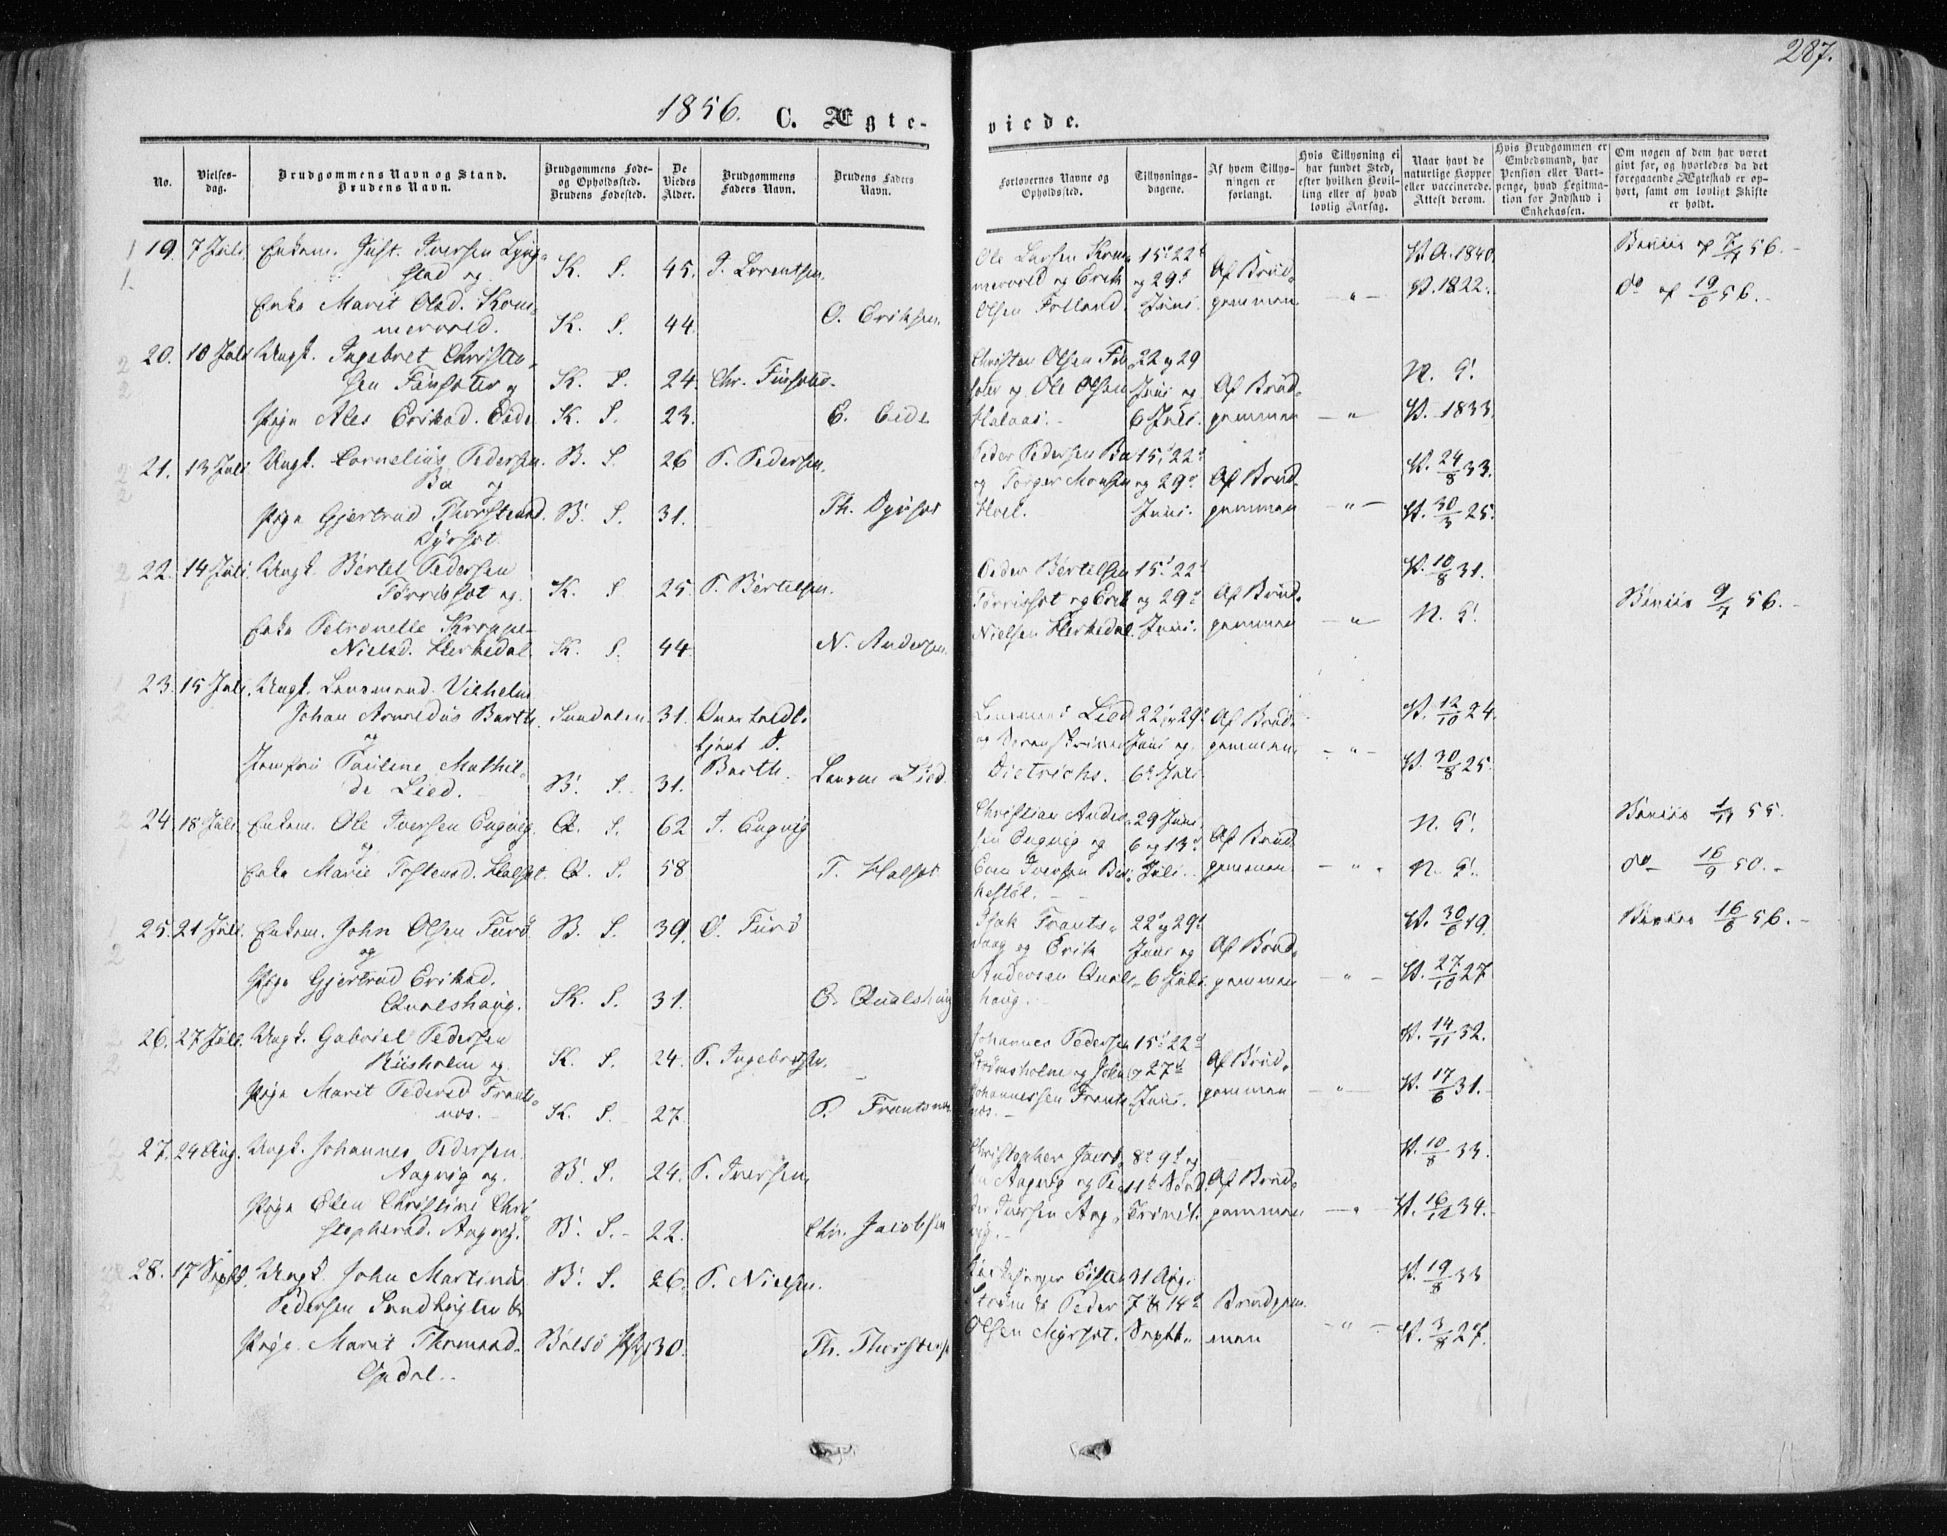 287.
1856. C. Ægte-
viede.
No.
Vielses-
dag.
Brudgommens Navn og Stand.
Brudens Navn.
Brudgommens Føde-
og Opholdssted.
Brudens Fødested.
De
Viedes
Alder.
Brudgommens
Faders Navn.
Brudens Faders
Navn.
Forlovernes Navne og
Opholdssted.
Tillysnings-
dagene.
Af hvem Tillys-
ningen er
forlangt.
Hvis Tillysning ei
har fundet Sted,
efter hvilken Bevil-
ling eller af hvad
lovlig Aarsag.
Naar havt de
naturlige Kopper
eller vaccinerede.
Attest derom.
Hvis Brudgommen er
Embedsmand, har
Pension eller Vart-
penge, hvad Legitima-
tion for Indskud i
Enkekassen.
Om nogen af dem har været
gift før, og hvorledes da det
foregaaende Ægteskab er op-
hørt, samt om lovligt Skifte
er holdt.
19. 7 Juli. Enkem. Just. Iversen Lyng-
stad og K. S. 45. I. Lorentsen.
Enke Marit Olsd. Kom-
mervold. K. S. 44. O. Eriksen.
Ole Larsen Kom- 15' 22'
mervold og Erik og 29' Af Brud-
Olsen Folland. Juni. gommen - " -
V. A. 1840.
V. 1822.
Beviis af 7/7 56. -
do af 19/6 56. -
20. 10 Juli Ungk. Ingebret Christen-
sen Fursæter og K. S. 24. Chr. Fursæter.
Pige Ales Eriksd. Eide K. S. 23. E. Eide
Christen Olsen Fur- 22 og 29
sæter og Ole Olsen Juni og Af Brud-
Halaas. 6 Juli. gommen - "
N. G.
V. 1833.
21. 13 Juli Ungk. Cornelius Pedersen. B. S. 26 P. Pedersen.
Bø og
Pige Gjertrud Thorstensd. B. S. 31. Th. Dyrset
Dyrset.
Peder Pedersen Bø 15' 22'
og Torger Monsen og 29' Af Brud-
Hoel. Juni. gommen - " -
V. 24/8 33.
V. 30/3 25.
22. 14 Juli Ungk. Bertel Pedersen
Tørrisset og. K. S. 25. P. Bertelsen.
Enke Petronelle Kroppe-
Nielsd. Herkedal K. S. 44. N. Andersen.
Peder Bertelsen 15' 22'
Tørrisset og Erik og 29' Af Brud-
Nielsen Herkedal. Juni. gommen - " -
V. 10/8 31.
N. G.
Beviis 9/7 56. -
23. 15 Juli. Ungk. Lensmand. Vilhelm
Johan Arnoldus Barth. Sundalen. 31.
og
Jomfru Pauline Mathil- Barth. Lensm. Lied
de Lied. B. S. 31.
Lensmand Lied 22' og 29' Af Brud-
og Juni og gommen. - " -
Dietrichs. 6' Juli
V. 12/10 24.
V. 30/8 25.
24. 18 Juli. Enkem. Ole Iversen Engvig. Q. S. 62 I. Engvig
og
Enke Marie Tostensd. Halset. Q. S. 58 T. Halset
Christian Ander- 29 Juni.
sen Engvig og 6 og 13' Af Brud-
Iversen Juli. gommen. - " -
N. G.
N. G.
Beviis 1/11 55.
do - 16/9 50. -
25. 21 Juli. Enkem. John Olsen Furø B. S. 39. O. Furø
og
Pige Gjertrud Eriksd.
Qualshaug. K. S. 31. E. Qualshaug
Isak Frants- 22' og 29'
haug og Erik Juni og Af Brud-
Andersen Quals- 6 Juli. gommen - " -
haug.
V. 30/6 19.
V. 27/10 27
Beviis 16/6 56. -
26. 27 Juli. Ungk. Gabriel Pedersen
Riisholm og. K. S. 24. P. Ingebretsen.
Pige Marit Pedersd. Frants-
nes. K. S. 27. P. Frantsnes
Johannes Pedersen 15' 22'
Strømsholm og John og 27' Af Brud-
Johannessen Frants- Juni. gommen - " -
nes.
V. 14/11 32.
V. 17/6 31. -
27. 24 Aug. Ungk. Johannes Pedersen
Aagvig og. B. S. 24. P. Iversen.
Pige Olen Christine Chri-
stophersd. Aagvig. B. S. - 22. Chr. Jacobsen
Christopher Jacob- 8' 9' og
sen Aagvig og Pe- 11' Sønd. Af Brud-
der Iversen Aag- Trinit. gommen - " -
vig. -
V. 10/8 33.
V. 16/12 34. -
28. 17 Septb. Ungk. John Martinus B. S. 26. P. Nielsen.
Pedersen Sandvigten &
Pige Marit Thomasd. Bolsø Pgj. 30. Th. Thorstens.
Opdøl. -
31 Aug.
Peder 7' & 14' Brudgom-
Olsen Myrset. Septb. men - " -
V. 19/8 33
V. 3/8 27.